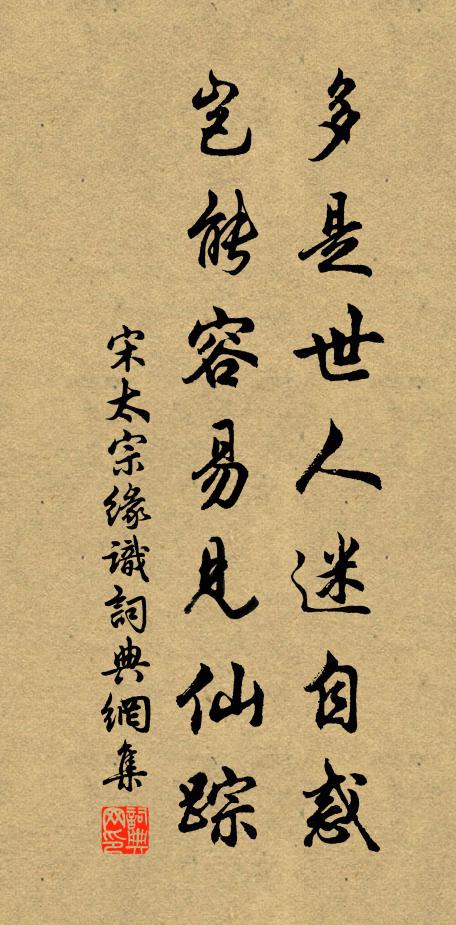 多是世人迷自惑
岂能容易见仙踪
宋太宗缘識詞典網集
詞典网印